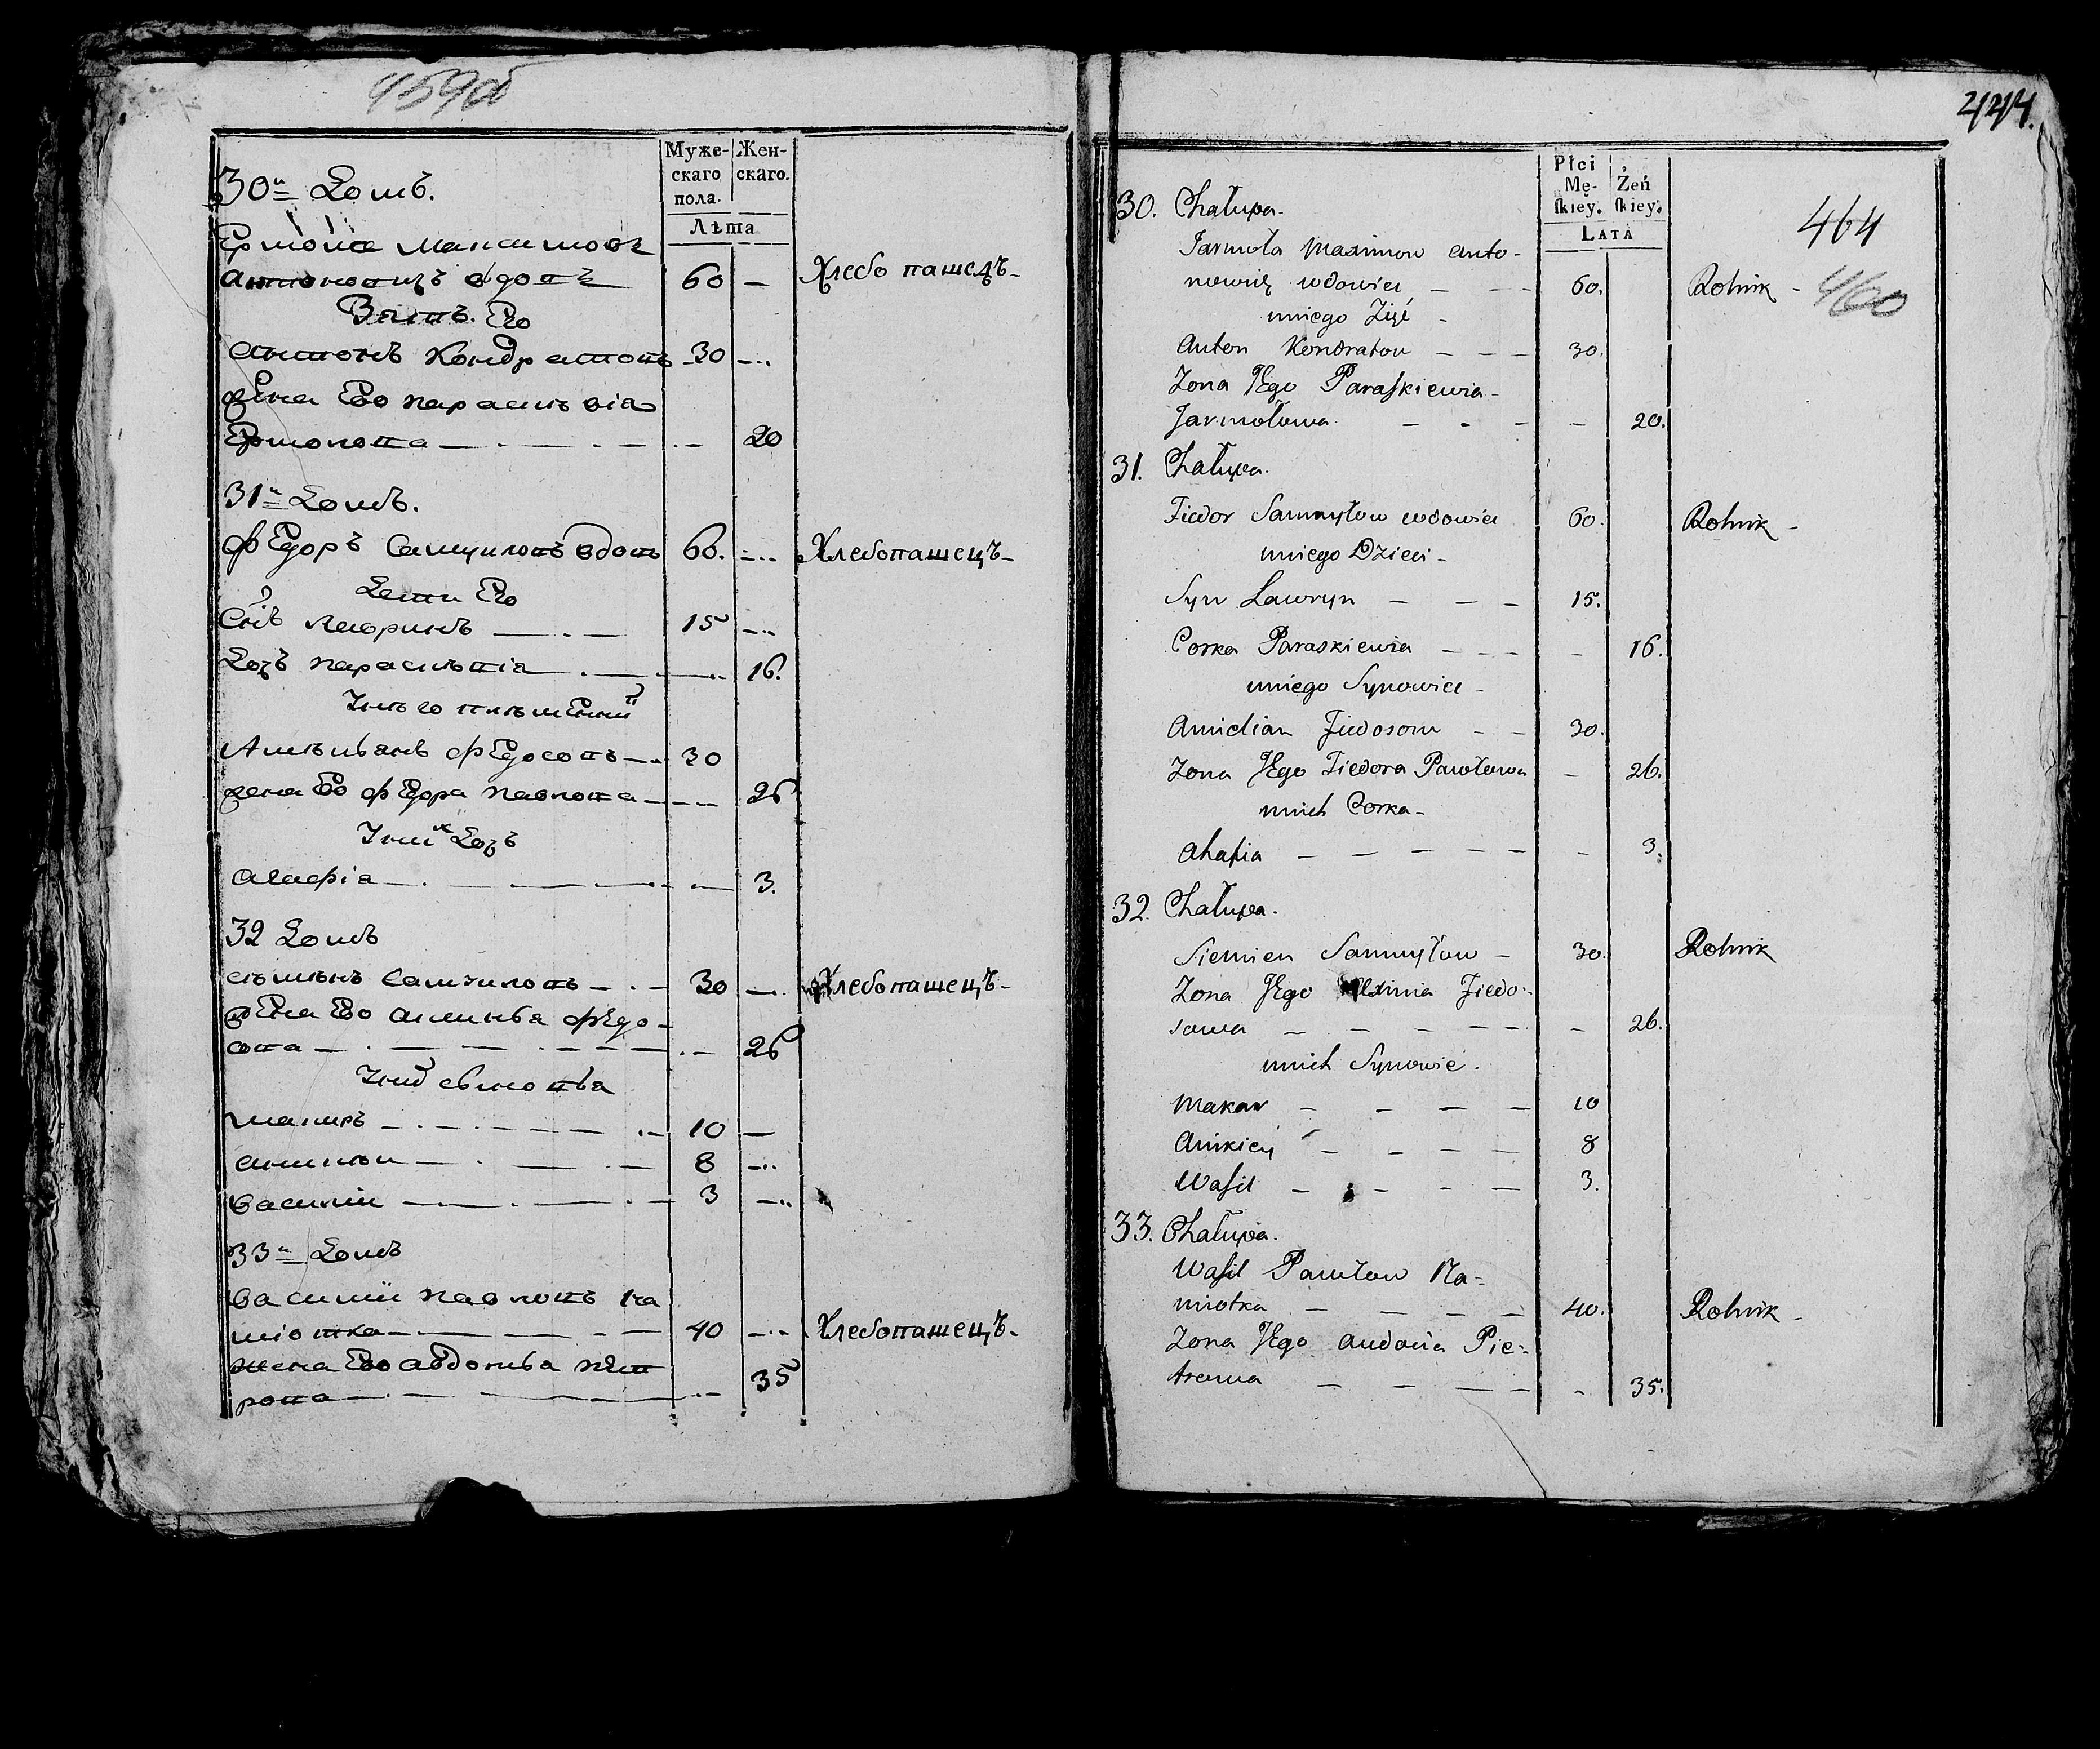 459об
Муже- Жен-
скаго скаго.
пола.
Лѣта
30й Домъ.
Ермола Максимовъ
Антоновичъ вдовъ 60 — Хлебопашецъ -
Зять Его
Антонъ Кондратовъ - 30 —
жена Ево Парасковія
Ермолова — 20
31й Домъ.
Федоръ Самуиловъ вдовъ 60. — Хлебопашецъ -
Дети Его
Снъ Лавринъ — 15 —
Дочъ Парасковія — 16.
Унего племенни
Федосовъ — 30
жена Ево Федора Павлова — 26
Уних Дочъ
Агафія — 3.
32 Домъ
Семенъ Самуиловъ — 30 — Хлебопашецъ -
жена Ево Аксинья Федо-
сова — 26
Уних сыновья
Макаръ — 10 —
Аникеи — 8 —
Василии — 3 —
33й Домъ
Василии Павловъ На
міотка — 40 — Хлебопашецъ -
жена Ево Авдотья Пет
рова — 35
444.
Płci
Mę- Żeń
skiey. skiey.
LATA
464
460
30. Chałupa.
Jarmoła Maximow Anto-
nowicz wdowiec — 60. Rolnik -
uniego Zięć -
Anton Kondratow — 30.
Zona Jego Paraskiewia -
Jarmołowa. — 20.
31. Chałupa.
Fiedor Samuyłow wdowiec 60. Rolnik -
uniego Dzieci -
Syn Lawryn — 15.
Corka Paraskiewia — 16.
uniego Synowiec -
Fiedosow — 30.
Zona Jego Fiedora Pawłowa — 26.
unich Corka -
Ahafia — 3.
32. Chałupa.
Siemien Samuyłow — 30. Rolnik
Zona Jego Axinia Fiedo-
sowa — 26.
unich Synowie.
Makar — 10
Anikiey — 8
Wasil — 3.
33. Chałupa.
Wasil Pawłow Na-
miotka — 40. Rolnik -
Zona Jego Audocia Pie-
trowa — 35.